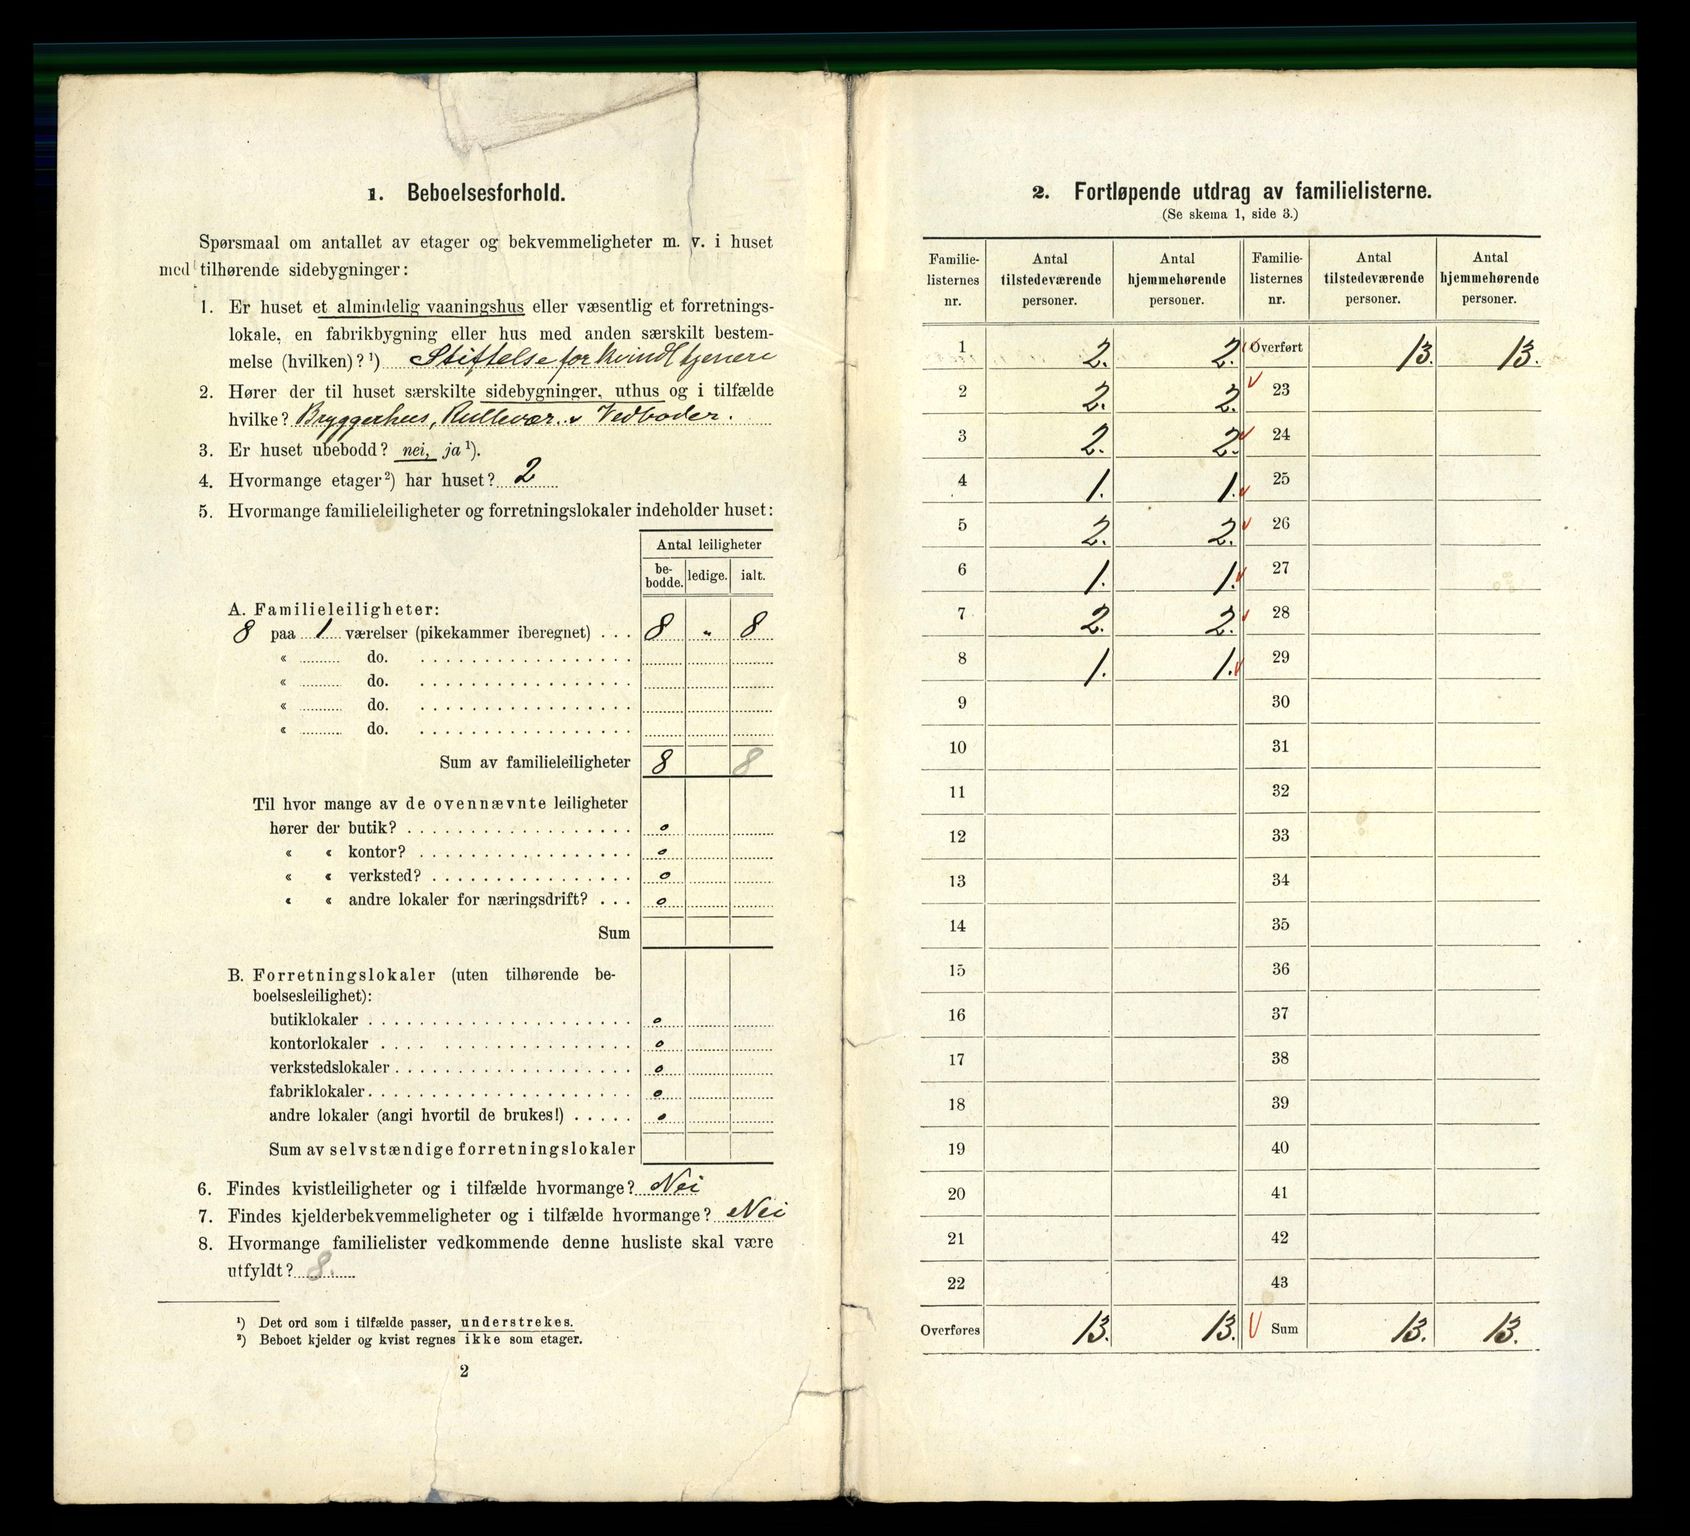 1. Beboelsesforhold.
Spørsmaal om antallet av etager og bekvemmeligheter m. v. i huset
med tilhørende sidebygninger:
1. Er huset et almindelig vaaningshus eller væsentlig et forretnings-
lokale, en fabrikbygning eller hus med anden særskilt bestem-
melse (hvilken)?¹) Stiftelse for kvindl tjenere
2. Hører der til huset særskilte sidebygninger, uthus og i tilfælde
hvilke? Bryggerhus, Rullevær. Vedboder.
3. Er huset ubebodd? nei, ja¹).
4. Hvormange etager²) har huset? 2
5. Hvormange familieleiligheter og forretningslokaler indeholder huset:
Antal leiligheter
be-
bodde. ledige. ialt.
A. Familieleiligheter:
8 paa 1 værelser (pikekammer iberegnet) . . . 8 „ 8
« do.
« do.
« do.
« do.
Sum av familieleiligheter 8 8
Til hvor mange av de ovennævnte leiligheter
hører der butik? 0
« « kontor? 0
« « verksted? 0
« « andre lokaler for næringsdrift? . . . 0
Sum
B. Forretningslokaler (uten tilhørende be-
boelsesleilighet):
butiklokaler 0
kontorlokaler 0
verkstedslokaler 0
fabriklokaler 0
andre lokaler (angi hvortil de brukes!) 0
Sum av selvstændige forretningslokaler
6. Findes kvistleiligheter og i tilfælde hvormange? Nei
7. Findes kjelderbekvemmeligheter og i tilfælde hvormange? Nei
8. Hvormange familielister vedkommende denne husliste skal være
utfyldt? 8.
¹) Det ord som i tilfælde passer, understrekes.
²) Beboet kjelder og kvist regnes ikke som etager.
2
2. Fortløpende utdrag av familielisterne.
(Se skema 1, side 3.)
Familie-
listernes
nr. Antal
tilstedeværende
personer. Antal
hjemmehørende
personer. Familie-
listernes
nr. Antal
tilstedeværende
personer. Antal
hjemmehørende
personer.
1 2. 2. Overført 13. 13.
2 2. 2. 23
3 2. 2. 24
4 1. 1. 25
5 2. 2. 26
6 1. 1. 27
7 2. 2. 28
8 1. 1. 29
9 30
10 31
11 32
12 33
13 34
14 35
15 36
16 37
17 38
18 39
19 40
20 41
21 42
22 43
Overføres 13. 13. Sum 13. 13.